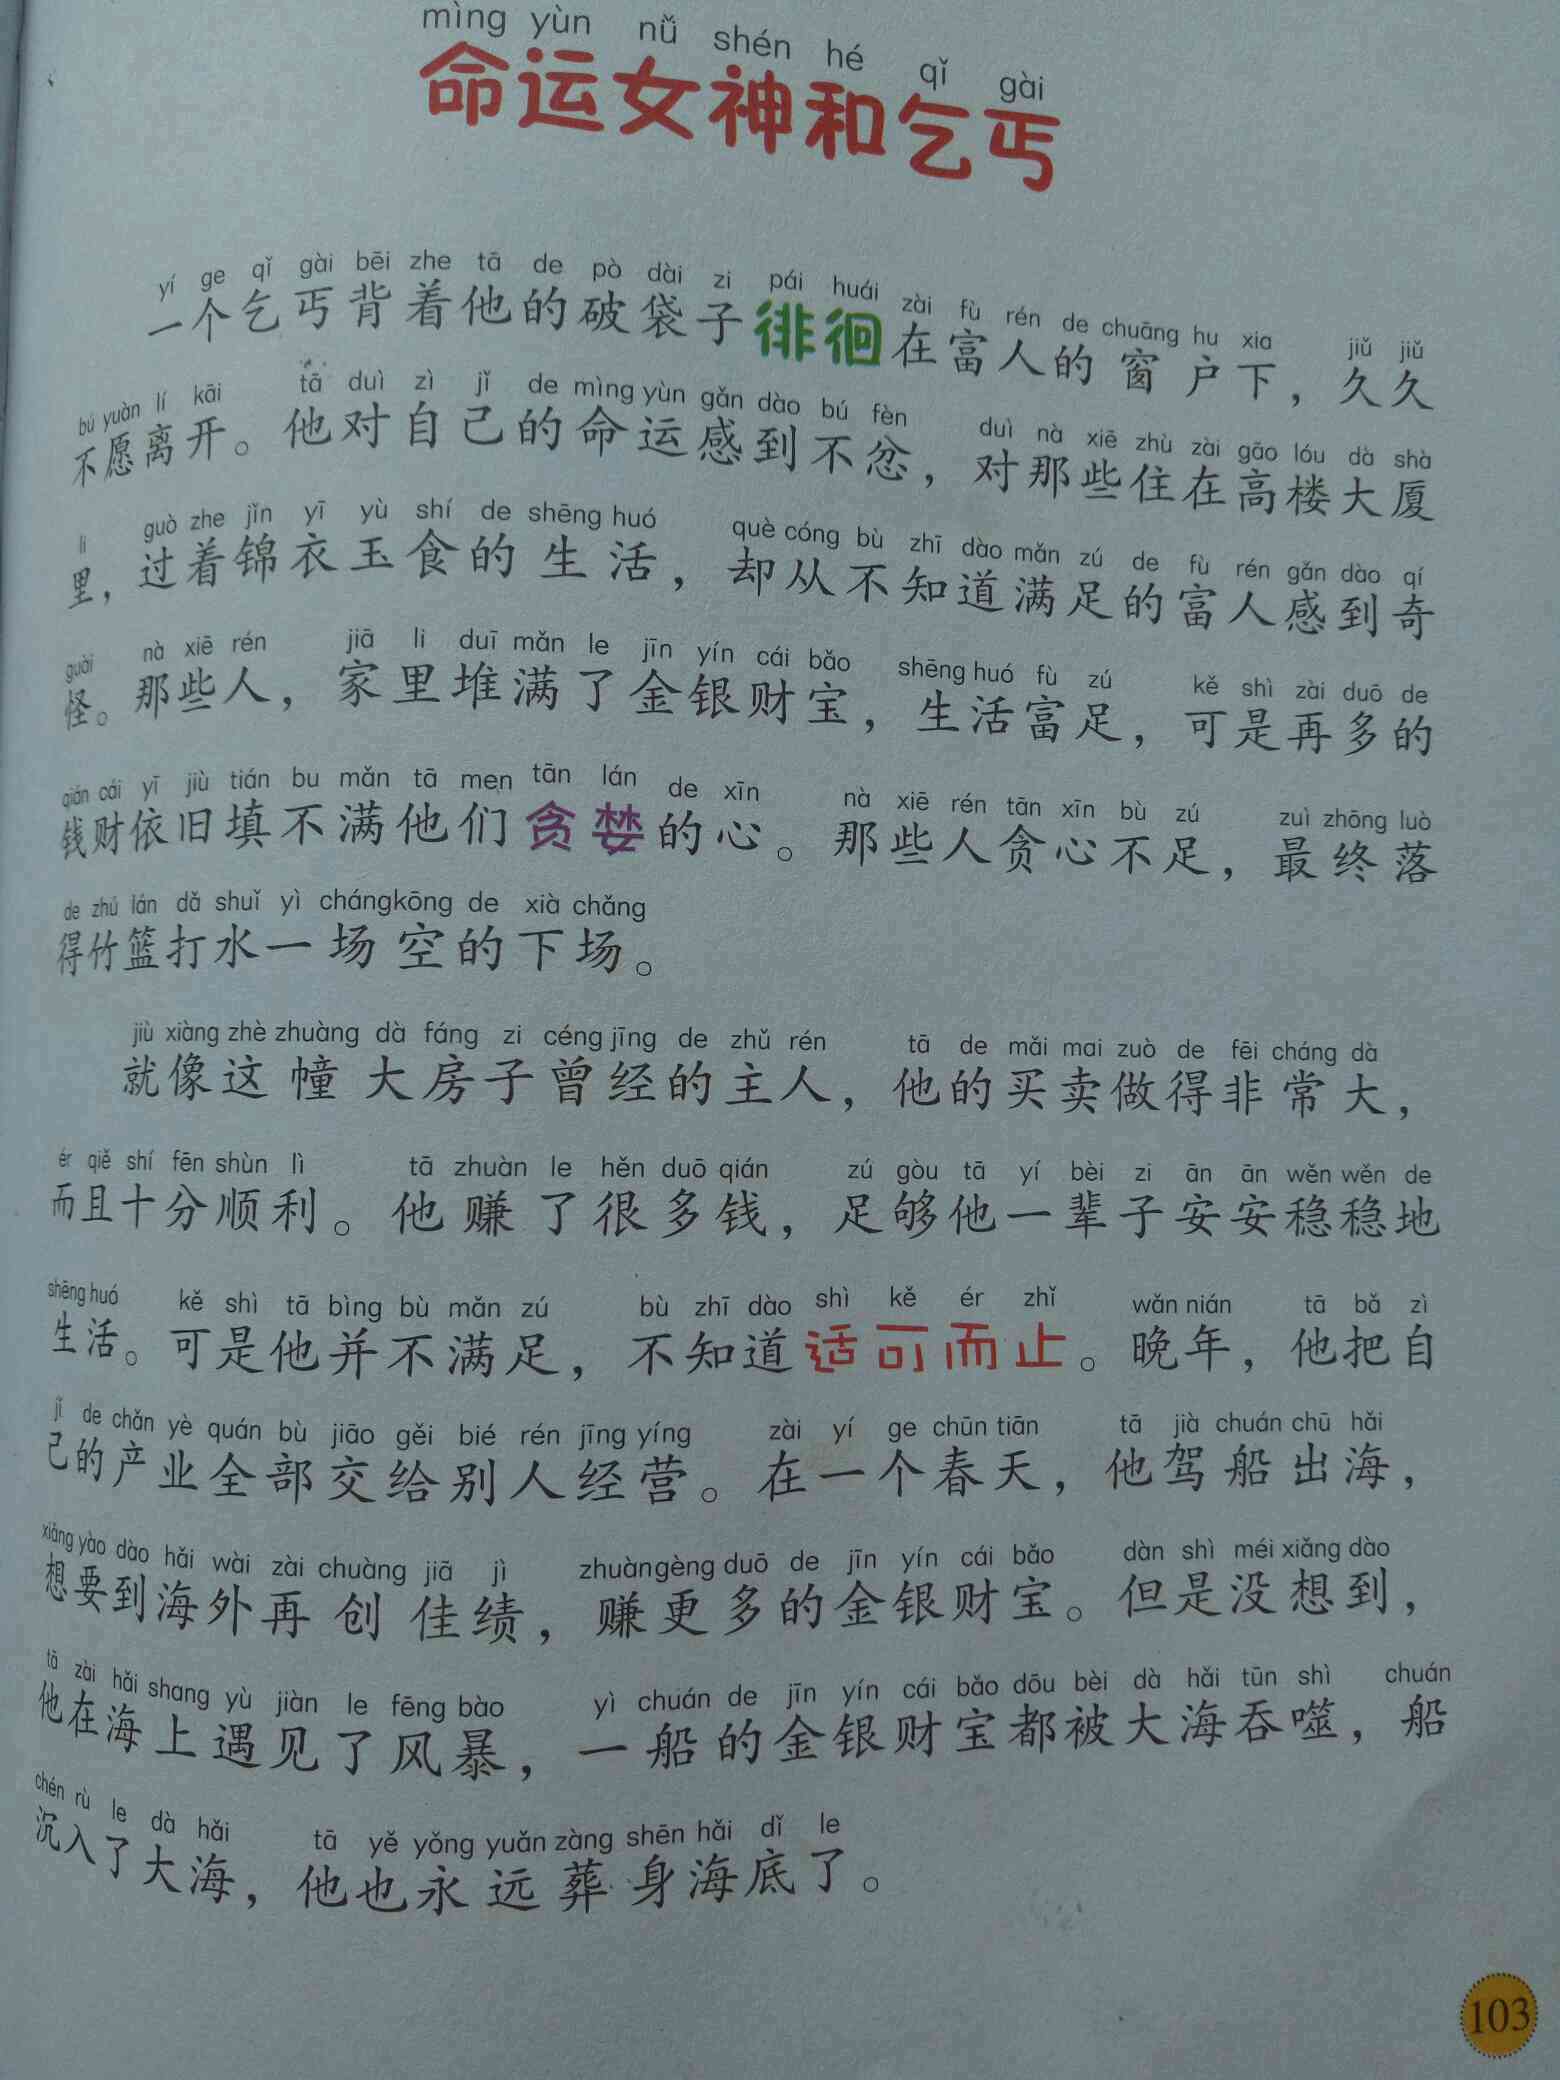 mìng yùn nǚ shén hé qǐ gài
命运女神和乞丐
yí ge qǐ gài bēi zhe tā de pò dài zi pái huái zài fù rén de chuāng hu xia jiǔ jiǔ
一个乞丐背着他的破袋子徘徊在富人的窗户下，久久
bú yuàn lí kāi tā duì zì jǐ de mìng yùn gǎn dào bú fèn duì nà xiē zhù zài gāo lóu dà shà
不愿离开。他对自己的命运感到不忿，对那些住在高楼大厦
li guò zhe jǐn yī yù shí de shēng huó què cóng bù zhī dào mǎn zú de fù rén gǎn dào qí
里，过着锦衣玉食的生活，却从不知道满足的富人感到奇
guài nà xiē rén jiā li duī mǎn le jīn yín cái bǎo shēng huó fù zú kě shì zài duō de
怪。那些人，家里堆满了金银财宝，生活富足，可是再多的
qián cái yī jiù tián bu mǎn tā men tān lán de xīn nà xiē rén tān xīn bù zú zuì zhōng luò
钱财依旧填不满他们贪婪的心。那些人贪心不足，最终落
de zhú lán dǎ shuǐ yì chángkōng de xià chǎng
得竹篮打水一场空的下场。
jiù xiàng zhè zhuàng dà fáng zi céng jīng de zhǔ rén tā de mǎi mai zuò de fēi cháng dà
就像这幢大房子曾经的主人，他的买卖做得非常大，
ér qiě shí fēn shùn lì tā zhuàn le hěn duō qián zú gòu tā yí bèi zi ān ān wěn wěn de
而且十分顺利。他赚了很多钱，足够他一辈子安安稳稳地
shēng huó kě shì tā bìng bù mǎn zú bù zhī dào shì kě ér zhǐ wǎn nián tā bǎ zì
生活。可是他并不满足，不知道适可而止。晚年，他把自
jǐ de chǎn yè quán bù jiāo gěi bié rén jīng yíng zài yí ge chūn tiān tā jià chuán chū hǎi
己的产业全部交给别人经营。在一个春天，他驾船出海，
xiǎng yào dào hǎi wài zài chuàng jiā jì zhuàngèng duō de jīn yín cái bǎo dàn shì méi xiǎng dào
想要到海外再创佳绩，赚更多的金银财宝。但是没想到，
tā zài hǎi shang yù jiàn le fēng bào yì chuán de jīn yín cái bǎo dōu bèi dà hǎi tūn shì chuán
他在海上遇见了风暴，一船的金银财宝都被大海吞噬，船
chén rù le dà hǎi tā yě yǒng yuǎn zàng shēn hǎi dǐ le
沉入了大海，他也永远葬身海底了。
103